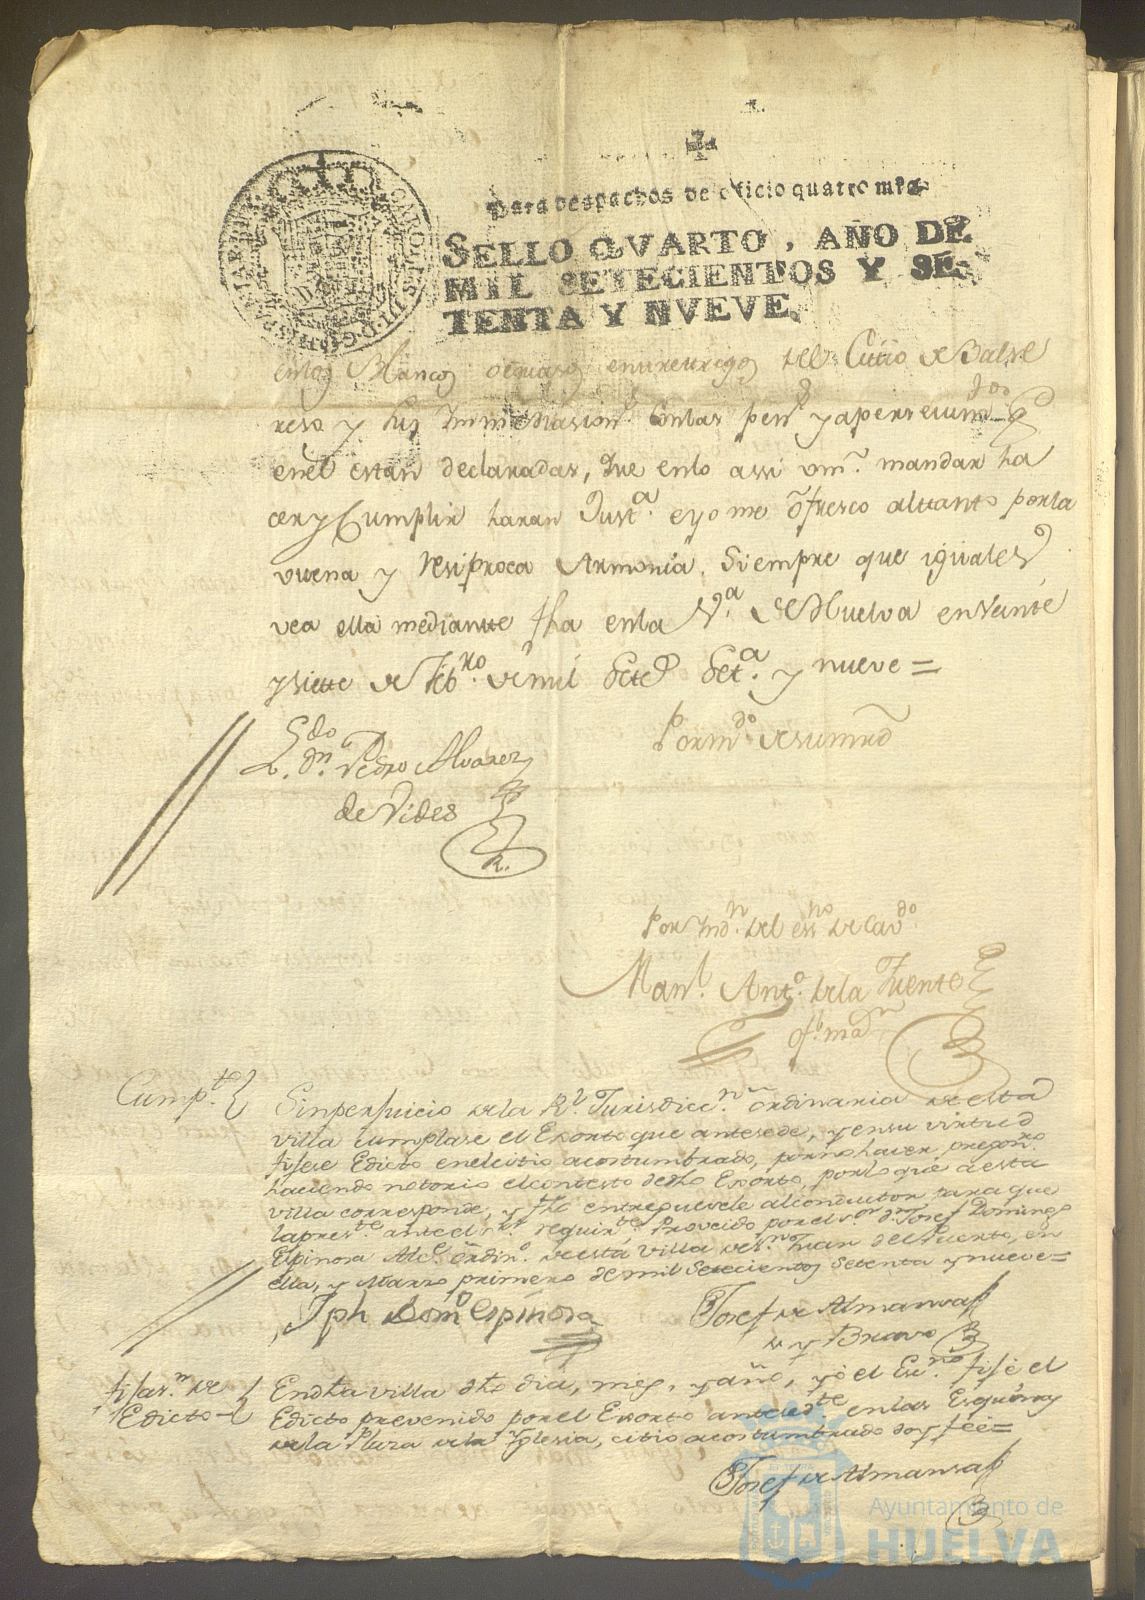 Para despachos de oficio quatro mrs.
SELLO QVARTO, AÑO DE
MIL SETECIENTOS Y SE-
TENTA Y NVEVE.
del Citio de Balde
y aperseium.
enel estan declaradas, que enlo assi vm. mandar ha
cer y Cumplir haran Just.a eyo me ofresco altanto por la
vuena y resiproca Armonia, Siempre que iguales
vea ella mediante fha enla V.a de Huelva en Veinte
y siette de Feb.ro de mil Sete.s Set.a y nueve =
L.do dn. Pedro Alvarez
de Vides
Por m.do de su mrd
Por Ind.n del ess.no de Cav.do
Man.l Ant.o de la Fuente
Cump.to
Sin perjuicio de la R.l Jurisdicc.n ordinaria de esta
villa cumplase el Exorto que antesede, y en su virtud
fijese Edicto enel citio acostumbrado, por no haver pregon.ro
haciendo notorio el contesto de dho Exorto, por lo que a esta
villa corresponde, y fho entreguesele al conductor para que
lo pres.te ante el s.or requir.te Proveido por el s.or dn. Josef Domingo
Espinosa Alc.e ordin.o de esta villa de S.n Juan del Puerto, en
ella, y Marzo primero de mil Setecientos Setenta y nueve =
Jph Dom.o Espinosa
Josef de Almansa
y Bravo
fijas.n de
Edicto
En dha villa dho dia, mes, y año, yo el Es.no fijé el
Edicto prevenido por el Exorto anteced.te en las Esquinas
de la Plaza de la Yglesia, citio acostumbrado doy feé =
Josef de Almansa
Ayuntamiento de
HUELVA